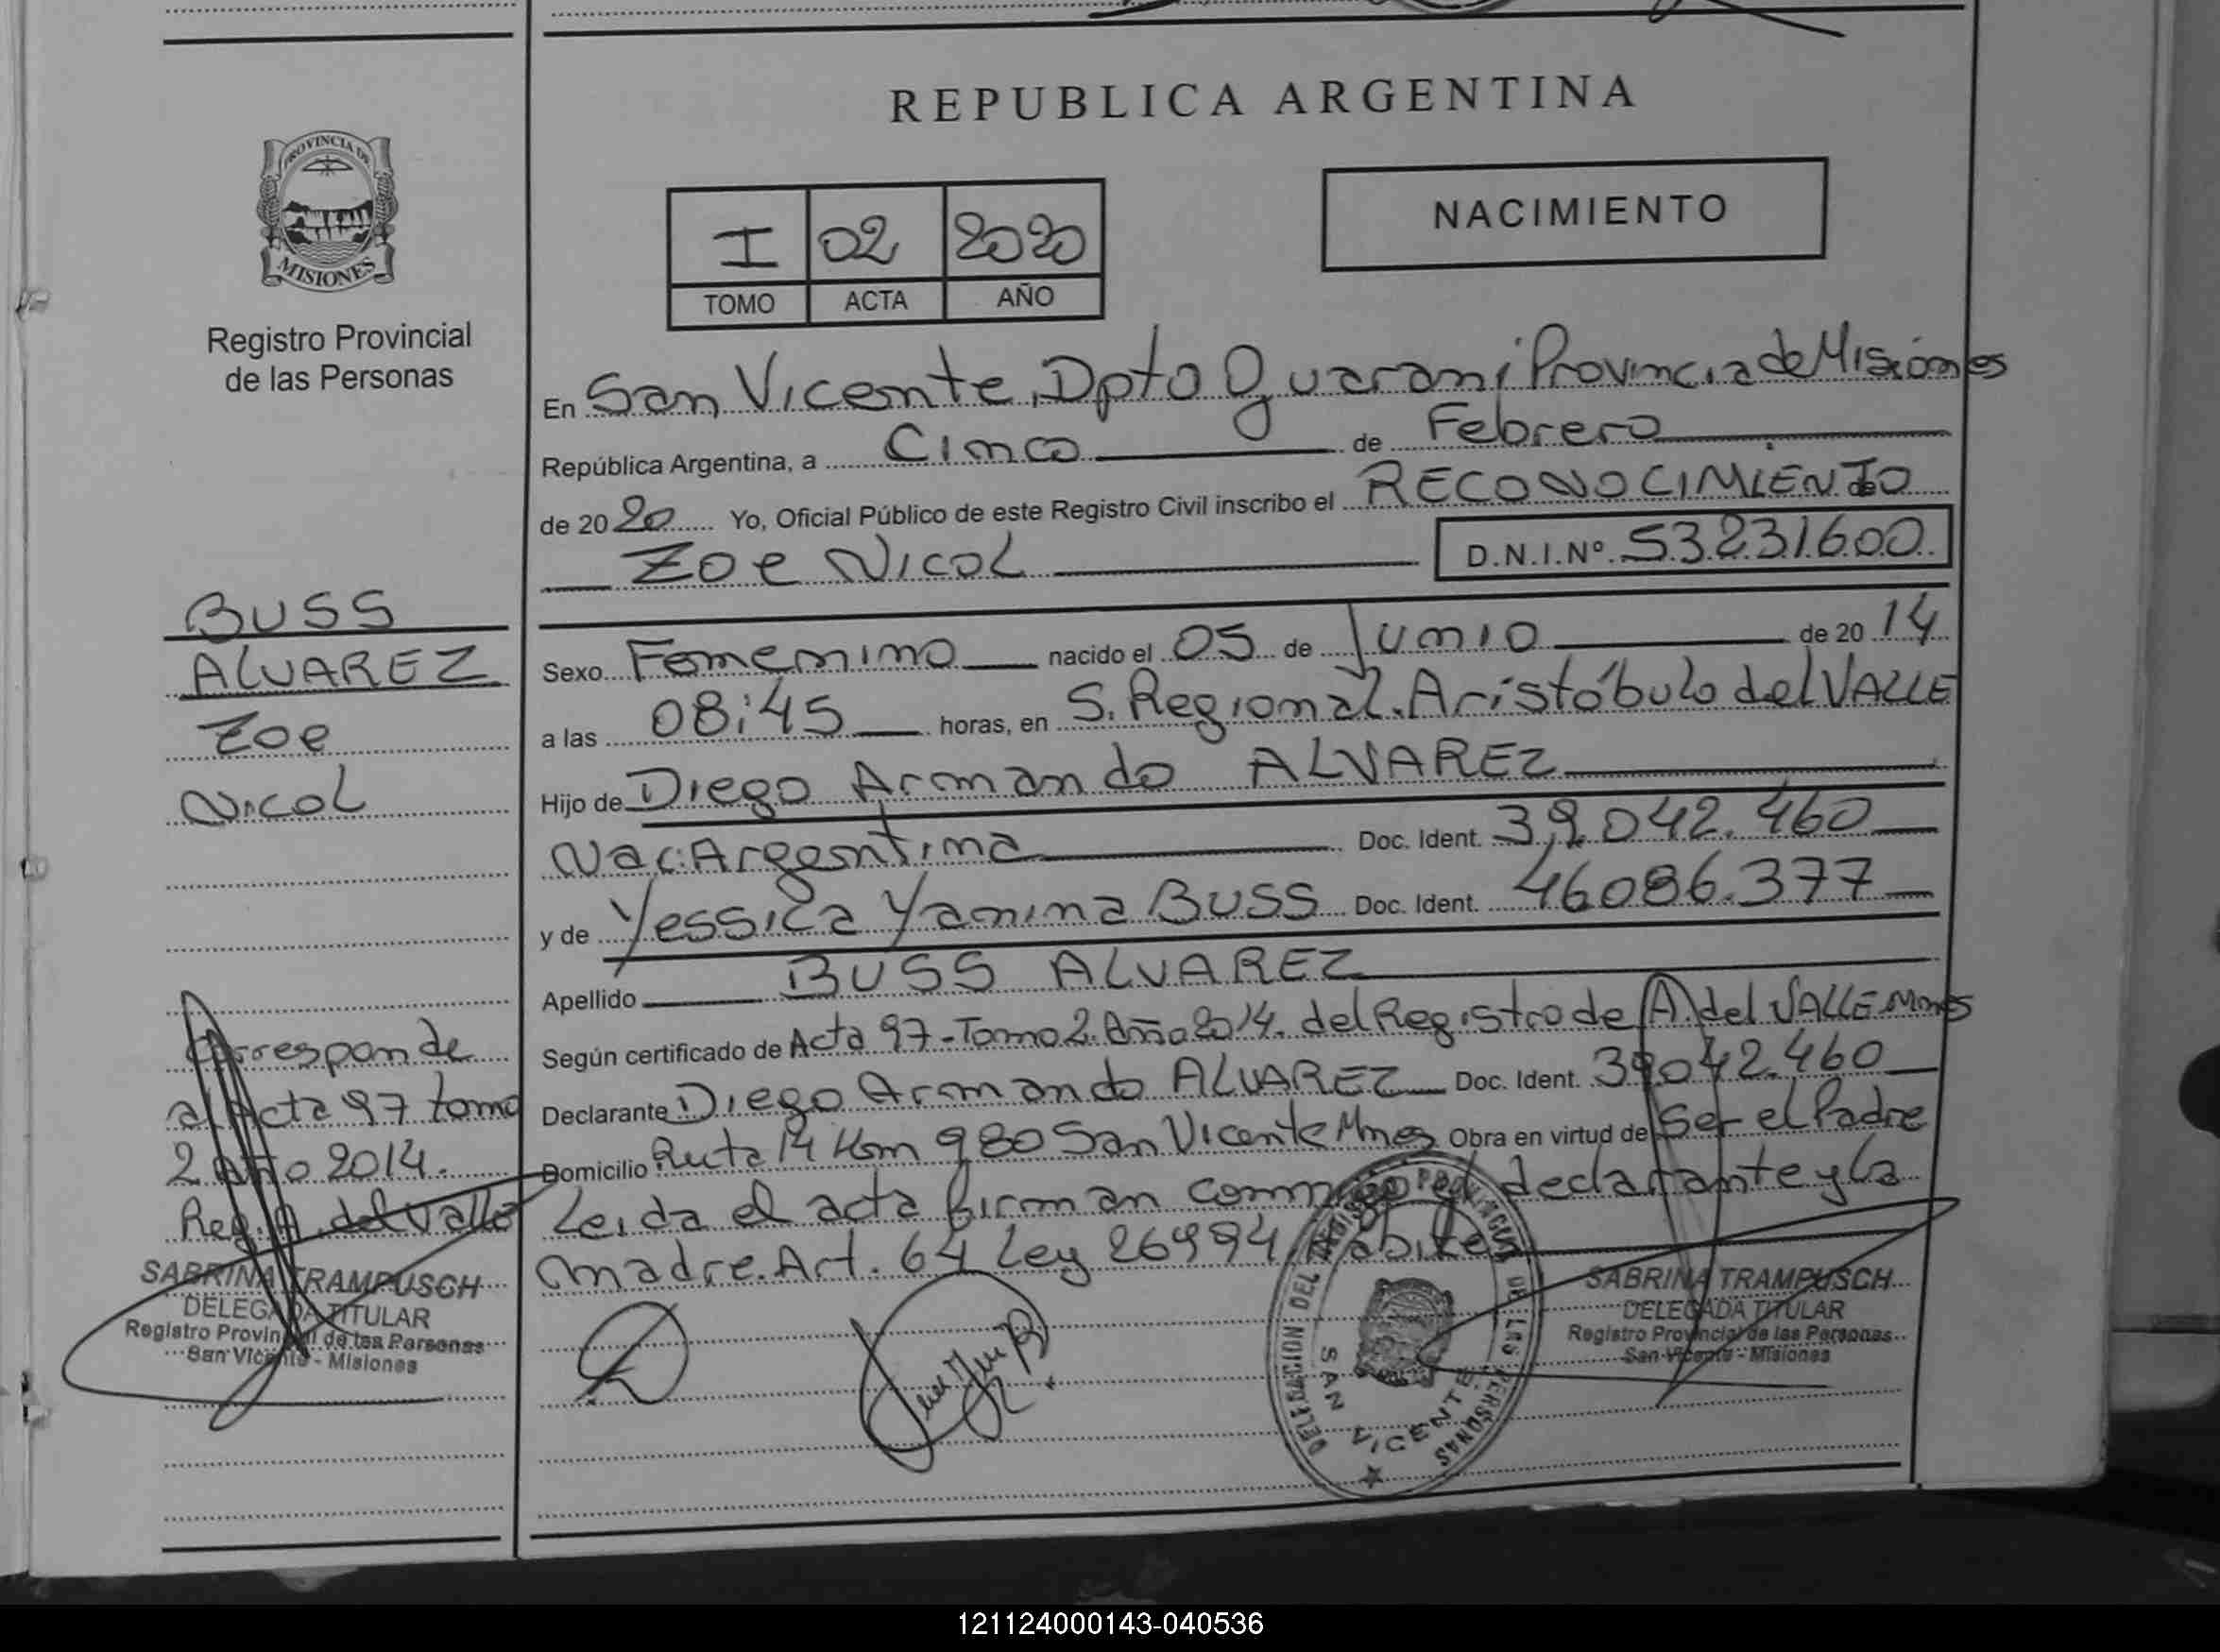 REPUBLICA ARGENTINA
PROVINCIA DE
MISIONES
Registro Provincial
de las Personas
I 02 2020
TOMO ACTA AÑO
NACIMIENTO
En San Vicente, Dpto Guarani Provincia de Misiones
República Argentina, a Cinco de Febrero
de 2020 Yo, Oficial Público de este Registro Civil inscribo el RECONOCIMIENTO de
Zoe Nicol D.N.I.Nº 53231600
Sexo Femenino nacido el 05 de Junio de 2014
a las 08:45 horas, en S. Regional. Aristóbulo del VALLE
Hijo de Diego Armando ALVAREZ
Nac: Argentina Doc. Ident. 39.042.460
y de Yessica Yanina BUSS Doc. Ident. 46086.377
Apellido BUSS ALVAREZ
Según certificado de Acta 97-Tomo 2. Año 2014. del Registro de A. del VALLE Mnes
Declarante Diego Armando ALVAREZ Doc. Ident. 39042.460
Domicilio Ruta 14 Km 980 San Vicente Mnes Obra en virtud de Ser el Padre
Leida el acta firman conmigo el declarante y la
madre. Art. 64 Ley 26994
BUSS
ALVAREZ
Zoe
Nicol
Corresponde
al Acta 97 tomo
2 Año 2014.
Reg. A. del Valle
SABRINA TRAMPUSCH
DELEGADA TITULAR
Registro Provincial de las Personas
San Vicente - Misiones
DELEGACION DEL REGISTRO PROVINCIAL DE LAS PERSONAS
SAN VICENTE
SABRINA TRAMPUSCH
DELEGADA TITULAR
Registro Provincial de las Personas
San Vicente - Misiones
121124000143-040536